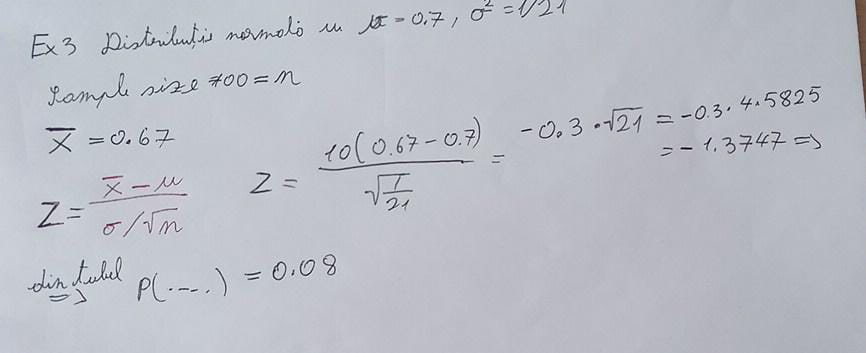 Ex3 Distributie normolo u μ = 0.7, σ² = 1/21
Sample size 100 = n
X̅ = 0.67
Z = (x̅ - μ) / (σ/√n) Z = 10(0.67 - 0.7) / √(1/21) = -0.3 · √21 = -0.3 · 4.5825
= -1.3747 =>
din tabel => P(.--.) = 0.08